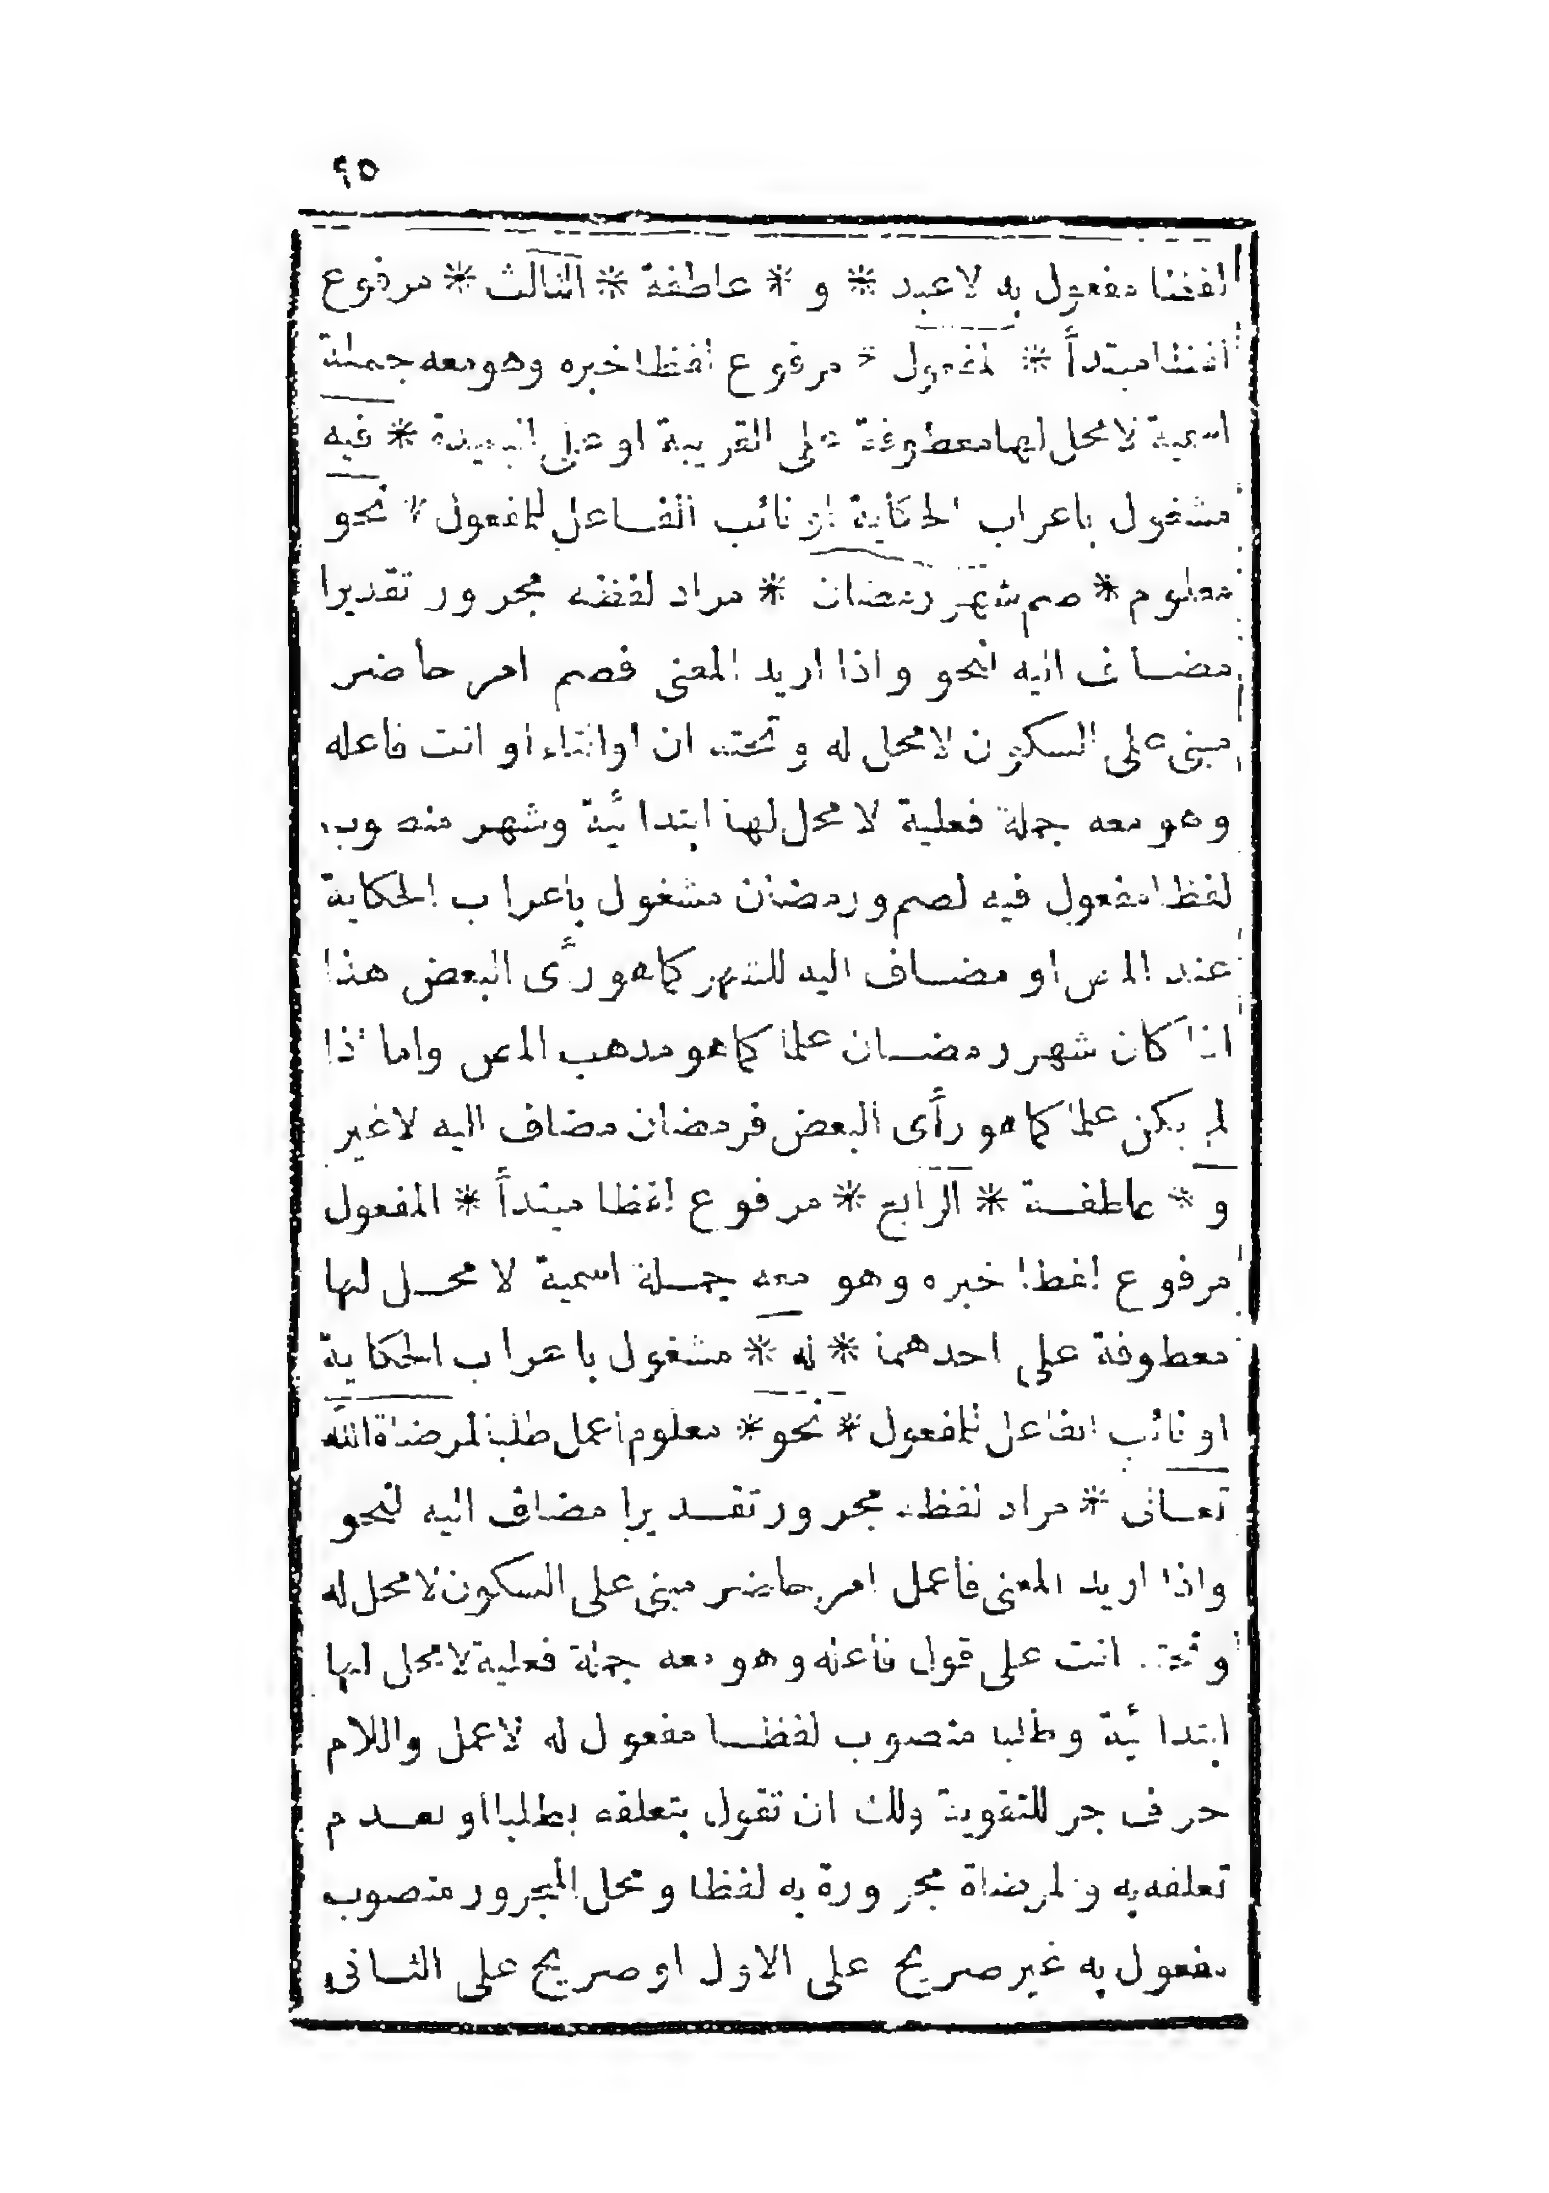 ٩٥
لفظا مفعول به لاعبد * و * عاطفة * الثالث * مرفوع
لفظا مبتدأ * المفعول * مرفوع لفظا خبره وهو معه جملة
اسمية لا محل لها معطوفة على القريبة او على البعيدة * فيه
مشغول باعراب الحكاية او نائب الفاعل للمفعول * نحو
معلوم * صم شهر رمضان * مراد لفظه مجرور تقديرا
مضاف اليه لنحو واذا اريد المعنى فصم امر حاضر
مبنى على السكون لا محل له وتحته ان او انتاء او انت فاعله
وهو معه جملة فعلية لا محل لها ابتدائية وشهر منصوب
لفظا مفعول فيه لصم ورمضان مشغول باعراب الحكاية
عند المص او مضاف اليه للشهر كما هو رأى البعض هذا
اذا كان شهر رمضان علما كما هو مذهب المص واما اذا
لم يكن علما كما هو رأى البعض فرمضان مضاف اليه لاغير
و * عاطفة * الرابع * مرفوع لفظا مبتدأ * المفعول
مرفوع لفظا خبره وهو معه جملة اسمية لا محل لها
معطوفة على احدهما * له * مشغول باعراب الحكاية
او نائب الفاعل للمفعول * نحو * معلوم اعمل طلبا لمرضاة الله
تعالى * مراد لفظه مجرور تقديرا مضاف اليه لنحو
واذا اريد المعنى فاعمل امر حاضر مبنى على السكون لا محل له
وتحته انت على قول فاعله وهو معه جملة فعلية لا محل لها
ابتدائية وطلبا منصوب لفظا مفعول له لاعمل واللام
حرف جر للتقوية ولك ان تقول بتعلقه بطلبا او بعدم
تعلقه به و لمرضاة مجرورة به لفظا ومحل المجرور منصوب
مفعول به غير صريح على الاول او صريح على الثانى